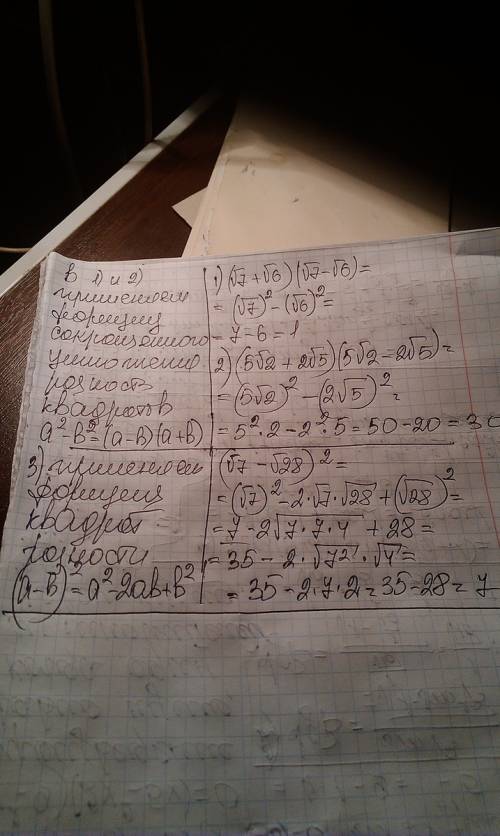 В 1) и 2)
применяем
формулу
сокращённого
умножения
разность
квадратов
a²-в²=(a-в)(a+в)
1) (√7+√6)(√7-√6)=
= (√7)²-(√6)²=
= 7-6=1
2) (5√2+2√5)(5√2-2√5)=
= (5√2)² - (2√5)²=
= 5²·2-2²·5=50-20=30
3) применяем
формулу
квадрат
разности
(a-в)²=a²-2aв+в²
(√7-√28)²=
= (√7)²-2·√7·√28+(√28)²=
= 7-2√7·7·4 + 28=
= 35-2·√7²·√4=
= 35-2·7·2=35-28=7